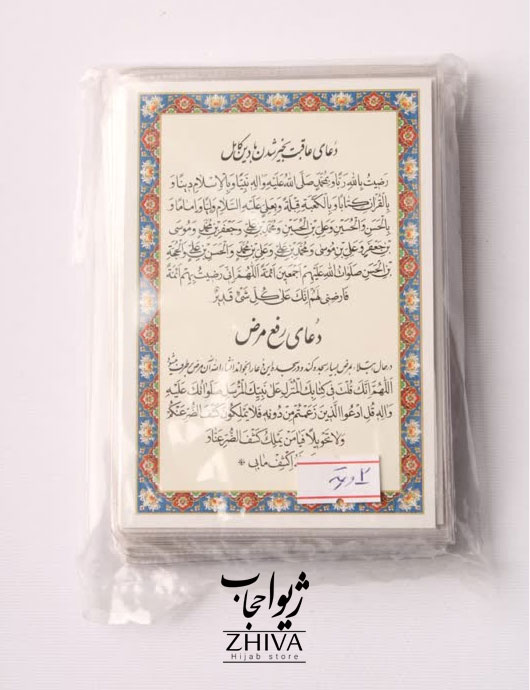 دعای عاقبت بخیر شدن با دین کامل
رَضیتُ بِاللهِ رَبّاً وَ بِمُحَمَّدٍ صَلَّى اللهُ عَلَیْهِ وَ الِهِ نَبِیّاً وَ بِالْاِسْلامِ دیناً وَ
بِالْقُرْانِ کِتاباً وَ بِالْکَعْبَةِ قِبْلَةً وَ بِعَلِیٍّ عَلَیْهِ السَّلامُ وَلِیّاً وَ اِماماً وَ
بِالْحَسَنِ وَ الْحُسَیْنِ وَ عَلِیِّ بْنِ الْحُسَیْنِ وَ مُحَمَّدِ بْنِ عَلِیٍّ وَ جَعْفَرِ بْنِ مُحَمَّدٍ وَ مُوسَى
بْنِ جَعْفَرٍ وَ عَلِیِّ بْنِ مُوسى وَ مُحَمَّدِ بْنِ عَلِیٍّ وَ عَلِیِّ بْنِ مُحَمَّدٍ وَ الْحَسَنِ بْنِ عَلِیٍّ وَ الْحُجَّةِ
بْنِ الْحَسَنِ صَلَواتُ اللهِ عَلَیْهِمْ اَجْمَعینَ اَئِمَّةً اَللّهُمَّ اِنّی رَضیتُ بِهِمْ اَئِمَّةً
فَارْضِنی لَهُمْ اِنَّکَ عَلى کُلِّ شَیْءٍ قَدیرٌ
دعای رفع مرض
در حال ابتلاء به مرض بسیار سجده کند و در سجده این دعا را بخواند انشاءالله آن مرض برطرف میشود
اَللّهُمَّ اِنَّکَ قُلْتَ فی کِتابِکَ الْمُنْزَلِ عَلى نَبِیِّکَ الْمُرْسَلِ صَلَواتُکَ عَلَیْهِ
وَ الِهِ قُلِ ادْعُوا الَّذینَ زَعَمْتُمْ مِنْ دُونِهِ فَلا یَمْلِکُونَ کَشْفَ الضُّرِّ عَنْکُمْ
وَ لا تَحْویلاً فَیا مَنْ یَمْلِکُ کَشْفَ الضُّرِّ عَنّا وَ
اِکْشِفْ ما بی
ژیوا حجاب
ZHIVA
Hijab store